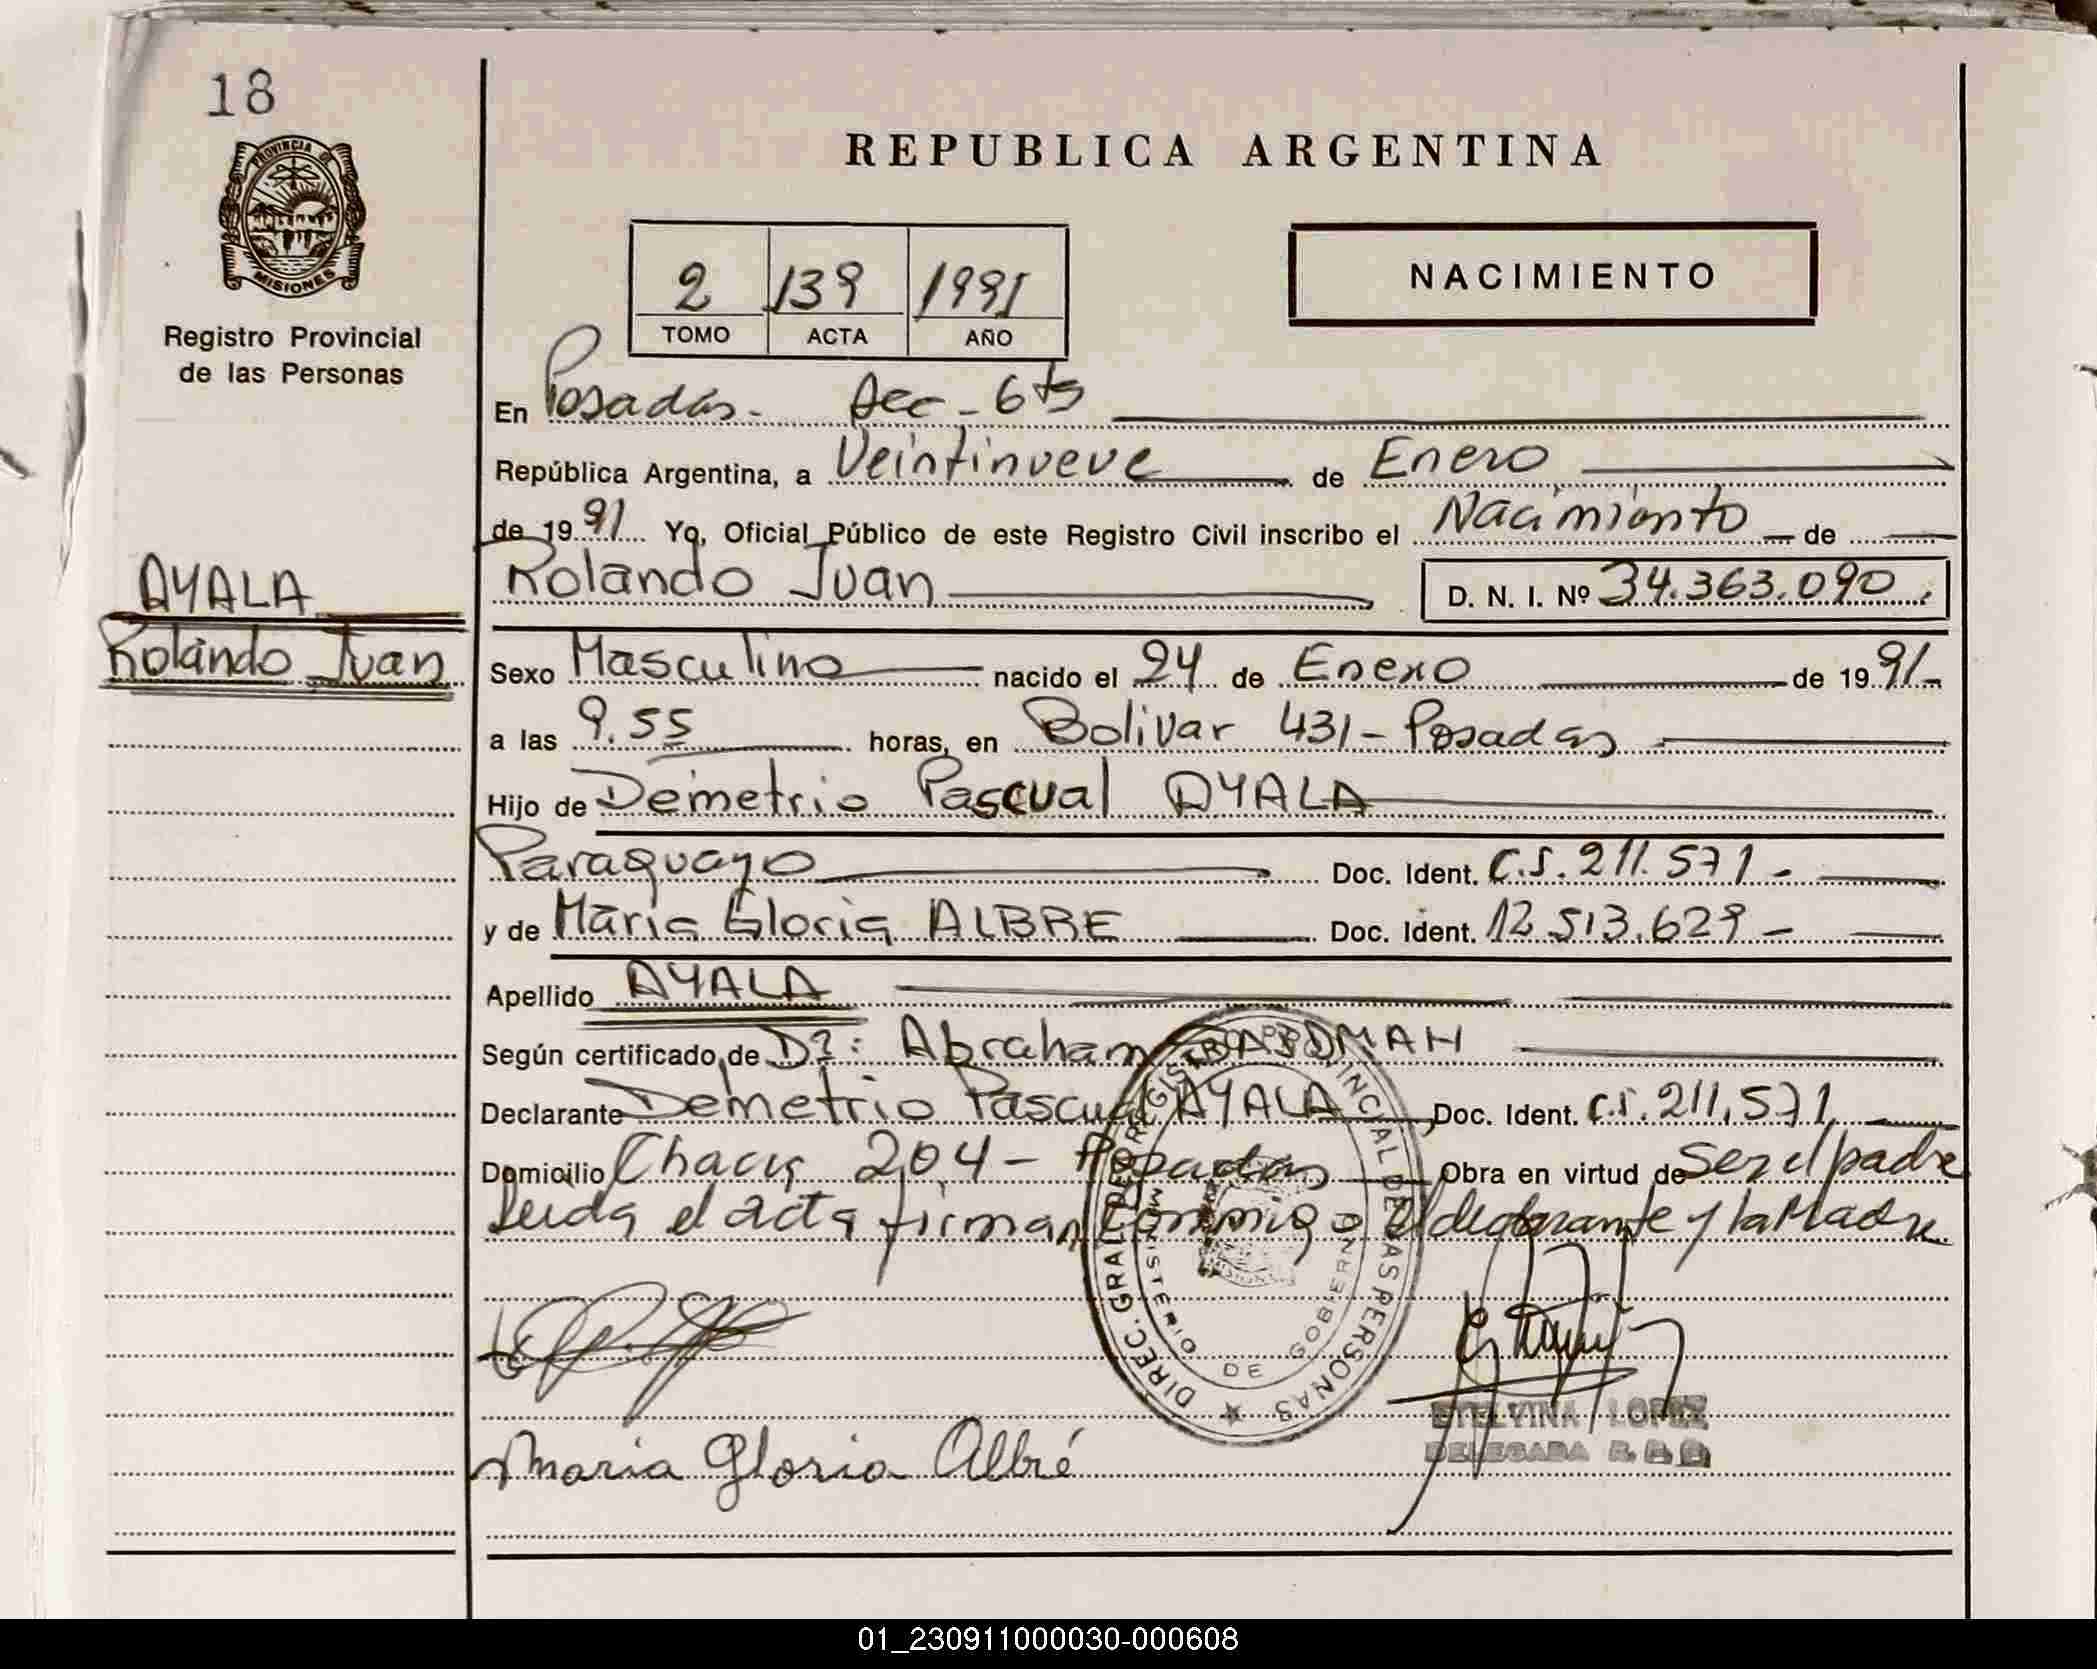 18
PROVINCIA DE
MISIONES
Registro Provincial
de las Personas
REPUBLICA ARGENTINA
2 139 1991
TOMO ACTA AÑO
NACIMIENTO
En Posadas - Sec - 6ta
República Argentina, a Veintinueve de Enero
de 1991 Yo, Oficial Público de este Registro Civil inscribo el Nacimiento de
AYALA
Rolando Juan
Rolando Juan D. N. I. Nº 34.363.090.
Sexo Masculino nacido el 24 de Enero de 1991-
a las 9.55 horas, en Bolivar 431 - Posadas
Hijo de Demetrio Pascual AYALA
Paraguayo Doc. Ident. C.I. 211.571 -
y de Maria Gloria ALBRE Doc. Ident. 12.513.629 -
Apellido AYALA
Según certificado de Dr: Abraham
Declarante Demetrio Pascual AYALA Doc. Ident. C.I. 211.571
Domicilio Chacra 204 - Posadas Obra en virtud de Ser el padre
Leida el acta firman conmigo el declarante y la Madre
DIREC. GRAL. DE REGISTRO PROVINCIAL DE LAS PERSONAS
MINISTERIO DE GOBIERNO
MISIONES
ETELVINA LOPEZ
DELEGADA R.
Maria Gloria Albré
01_230911000030-000608